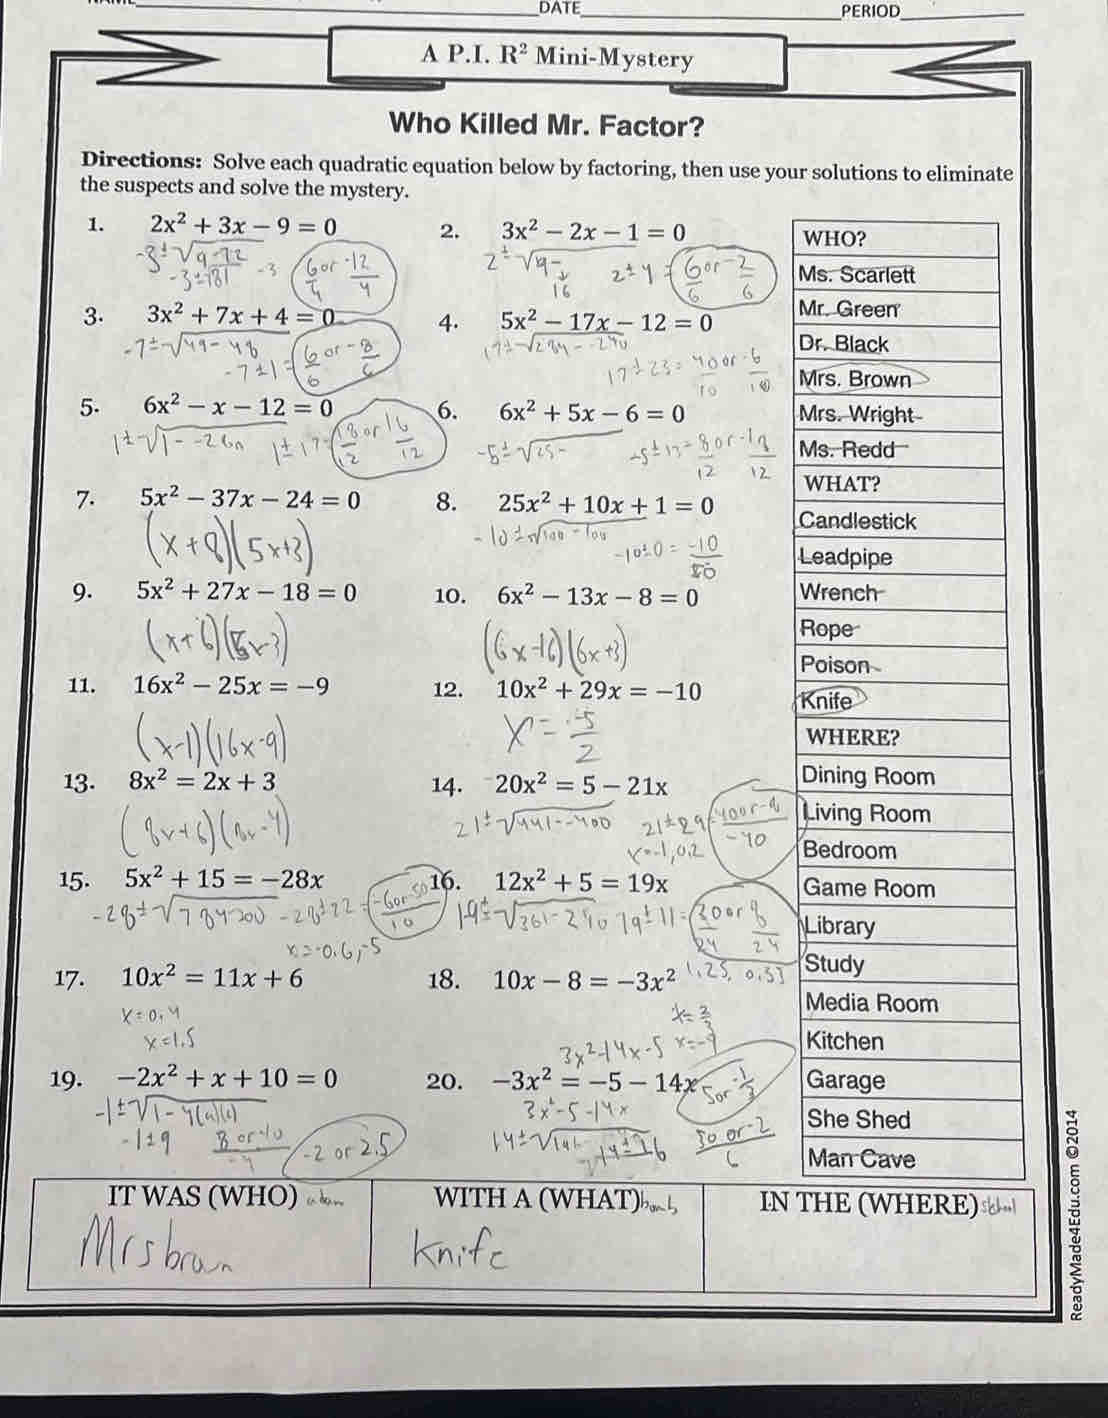 DATE PERIOD
A P.I. R² Mini-Mystery
Who Killed Mr. Factor?
Directions: Solve each quadratic equation below by factoring, then use your solutions to eliminate
the suspects and solve the mystery.
1. 2x² + 3x − 9 = 0
-3±√9-72
-3±√81 -3 6/4 or -12/4
2. 3x² − 2x − 1 = 0
2±√4-
16
2±4 = 6/6 or -2/6
3. 3x² + 7x + 4 = 0
-7±√49-48
-7±1 = 6/6 or -8/6
4. 5x² − 17x − 12 = 0
17±√289--240
17±23 = 40/10 or -6/10
5. 6x² − x − 12 = 0
1±√1-
1±17 18/12 or 16/12
6. 6x² + 5x − 6 = 0
-5±√25-
-5±13 = 8/12 or -18/12
7. 5x² − 37x − 24 = 0
(x+8)(5x+3)
8. 25x² + 10x + 1 = 0
-10±√100-100
-10±0 = -10/50
9. 5x² + 27x − 18 = 0
(x+6)(5x-3)
10. 6x² − 13x − 8 = 0
(6x-16)(6x+3)
11. 16x² − 25x = −9
(x-1)(16x-9)
12. 10x² + 29x = −10
x = -5/2
13. 8x² = 2x + 3
(8x+6)(8x-4)
14. 20x² = 5 − 21x
21±√441--400
21±29 = 
-40
x=-1,0.2
15. 5x² + 15 = −28x
-28±√784-300 -28±22 = -6or-50/10
x=-0.6,-5
16. 12x² + 5 = 19x
19±√361-240 19±11 = 30/24 or 8/24
1.25, 0.33
17. 10x² = 11x + 6
x=0.4
x=1.5
18. 10x − 8 = −3x²
x=2/3
x=-4
19. −2x² + x + 10 = 0
-1±√1-4
-1±9 8 or -10/-4 -2 or 2.5
20. −3x² = −5 − 14x
3x²-14x-5
5 or -1/3
3x²-5-14x
14±√ 14±16 30 or -2/6
WHO?
Ms. Scarlett
Mr. Green
Dr. Black
Mrs. Brown
Mrs. Wright
Ms. Redd
WHAT?
Candlestick
Leadpipe
Wrench
Rope
Poison
Knife
WHERE?
Dining Room
Living Room
Bedroom
Game Room
Library
Study
Media Room
Kitchen
Garage
She Shed
Man Cave
IT WAS (WHO) adam
Mrs bran
WITH A (WHAT) bomb
Knife
IN THE (WHERE) school
ReadyMade4Edu.com ©2014